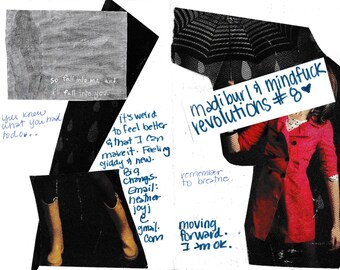 so fall into me, and
i'll fall into you
you know
what you had
to do...
it's weird
to feel better
& that I can
make it. Feeling
giddy & new.
Big
changs.
Email:
heather
joyj
@
gmail.
com
madiburl & mindfuck
revolutions #8 ♥
remember
to breathe.
moving
forward.
I am ok.